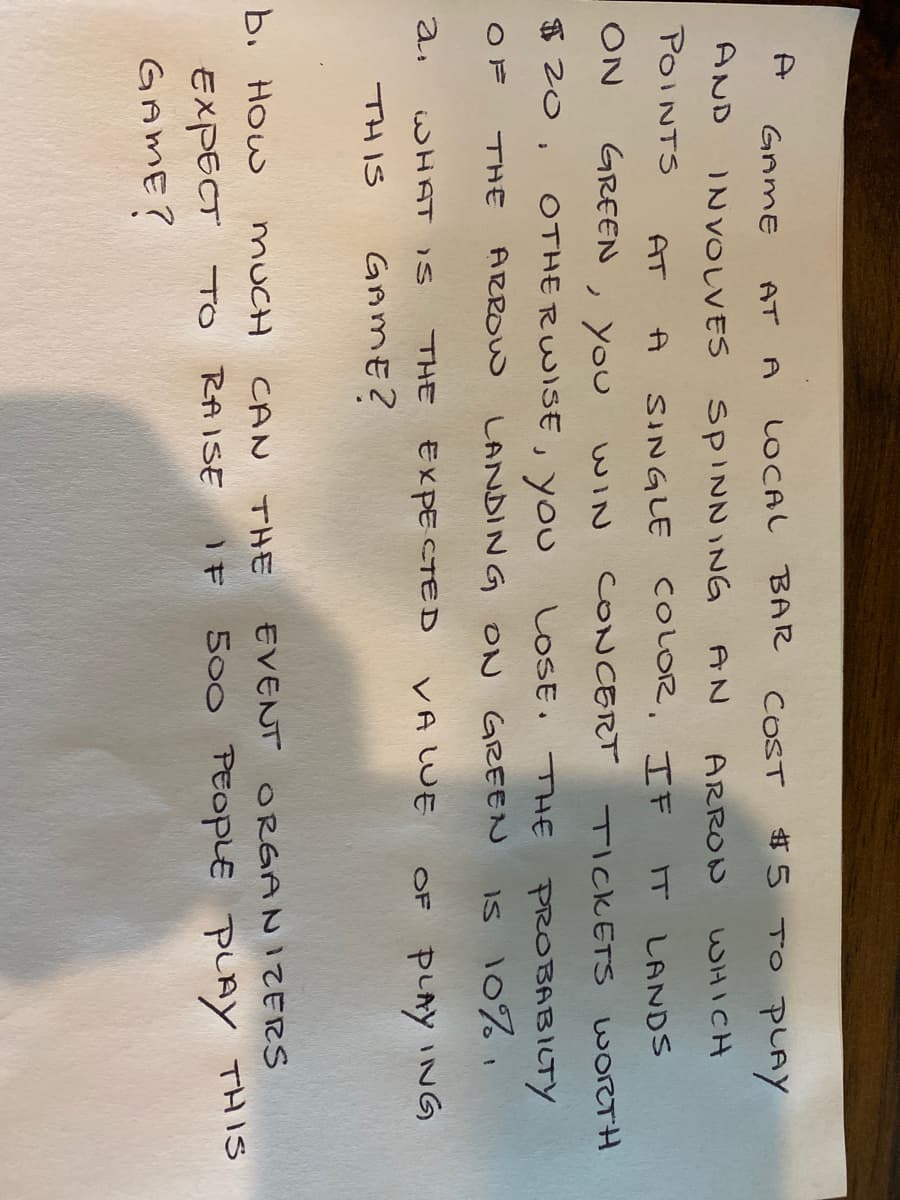 A GAME AT A LOCAL BAR COST $5 TO PLAY
AND INVOLVES SPINNING AN ARROW WHICH
POINTS AT A SINGLE COLOR. IF IT LANDS
ON GREEN, YOU WIN CONCERT TICKETS WORTH
$20. OTHERWISE, YOU LOSE. THE PROBABILTY
OF THE ARROW LANDING ON GREEN IS 10%.
a. WHAT IS THE EXPECTED VALUE OF PLAYING
THIS GAME?
b. HOW MUCH CAN THE EVENT ORGANIZERS
EXPECT TO RAISE IF 500 PEOPLE PLAY THIS
GAME?